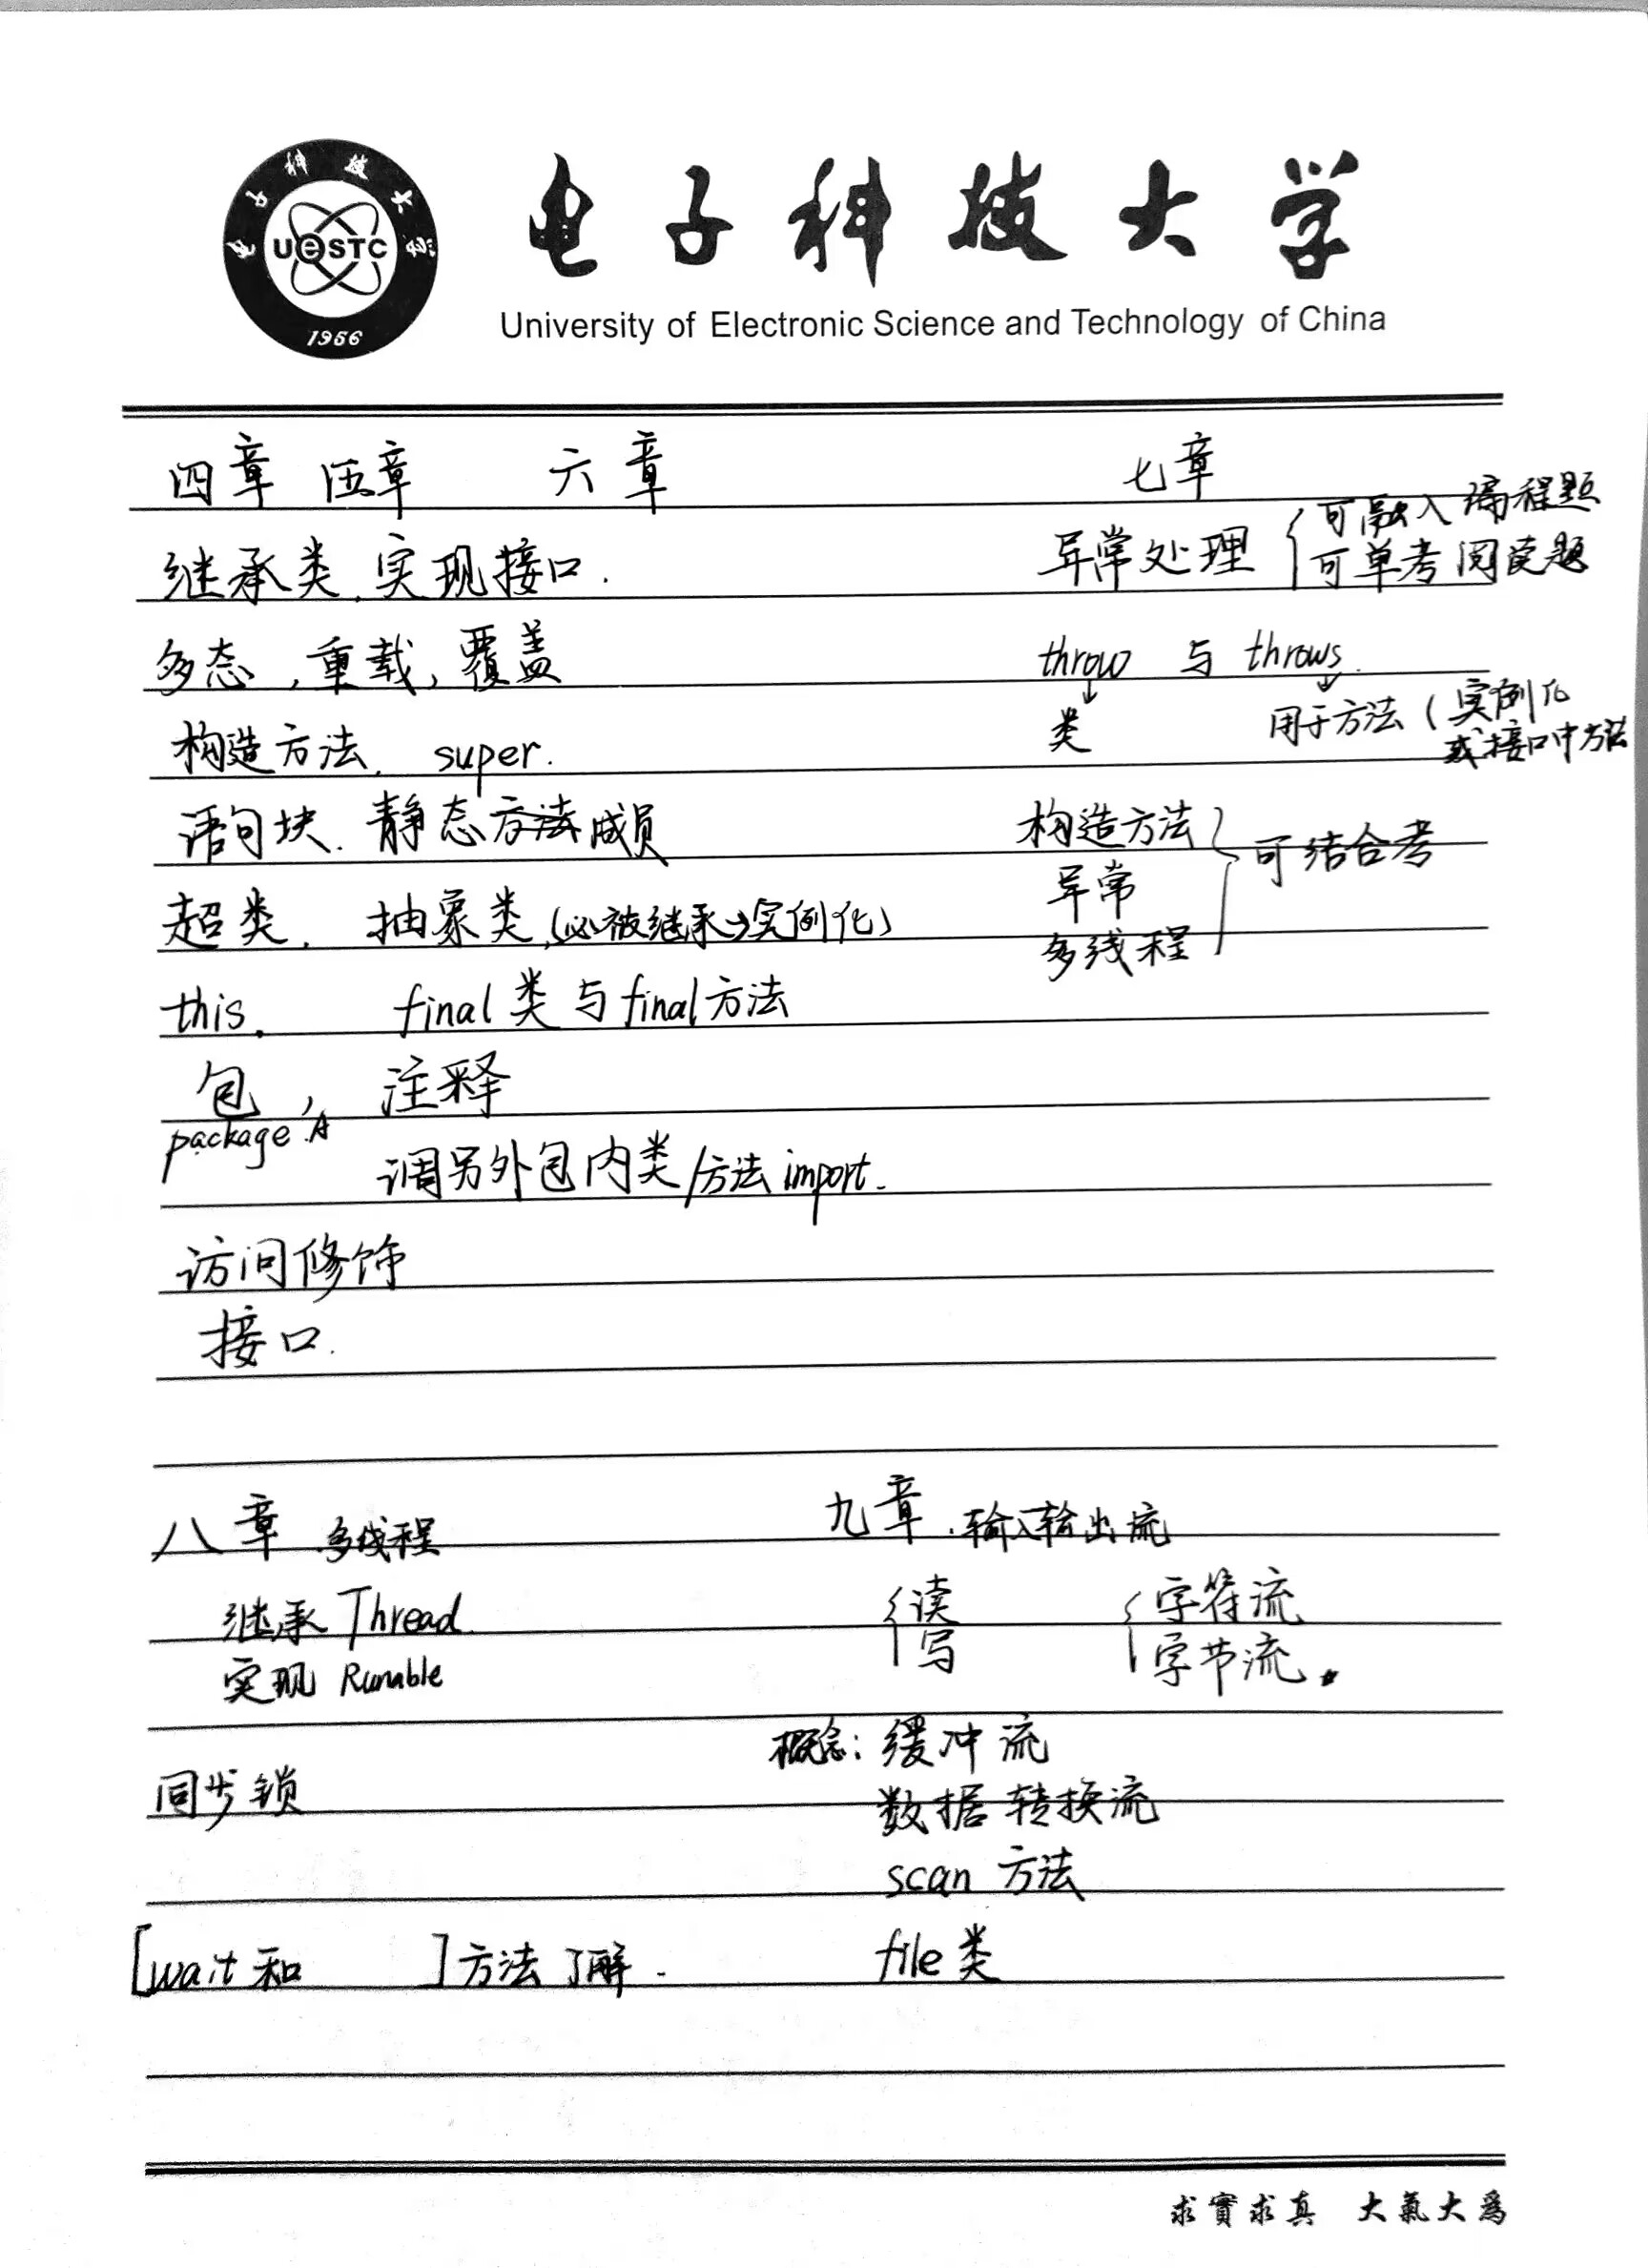 电子科技大学
UESTC
1956
电子科技大学
University of Electronic Science and Technology of China
四章 伍章 六章
继承类, 实现接口.
多态, 重载, 覆盖
构造方法. super.
语句块. 静态方法成员
超类, 抽象类,(必被继承→实例化)
this. final类与final方法
包, 注释
package A
调另外包内类/方法import.
访问修饰
接口.
七章
异常处理 可融入编程题
可单考阅读题
throw 与 throws.
类 用于方法(实例化
或接口中方法
构造方法
异常 可结合考
多线程
八章 多线程
继承Thread.
实现 Runable
同步锁
[wait和 ]方法了解.
九章.输入输出流
读 字符流
写 字节流.
概念: 缓冲流
数据转换流
scan 方法
file类
求實求真 大氣大為